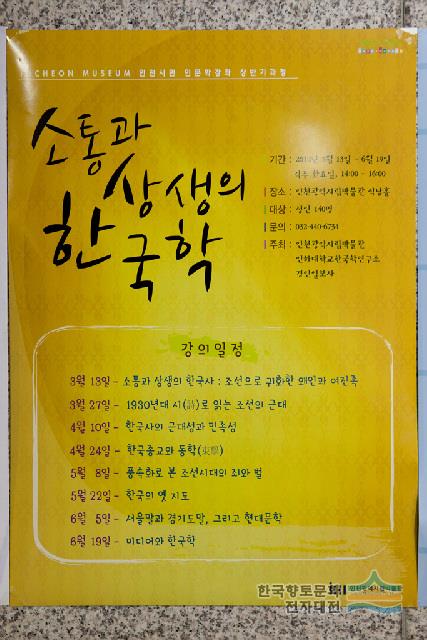 INCHEON MUSEUM 인천시립 인문학강좌 상반기과정
소통과
상생의
한국학
기간 : 2013년 3월 13일 ~ 6월 19일
격주 수요일, 14:00 ~ 16:00
장소 : 인천광역시립박물관 석남홀
대상 : 성인 140명
문의 : 032-440-6734
주최 : 인천광역시립박물관
인하대학교한국학연구소
경인일보사
강의일정
3월 13일 - 소통과 상생의 한국사 : 조선으로 귀화한 왜인과 여진족
3월 27일 - 1930년대 시(詩)로 읽는 조선의 근대
4월 10일 - 한국사의 근대성과 민족성
4월 24일 - 한국종교와 동학(東學)
5월 8일 - 풍속화로 본 조선시대의 죄와 벌
5월 22일 - 한국의 옛 지도
6월 5일 - 서울말과 경기도말, 그리고 현대문학
6월 19일 - 미디어와 한국학
인천광역시립박물관
한국향토문화
전자대전